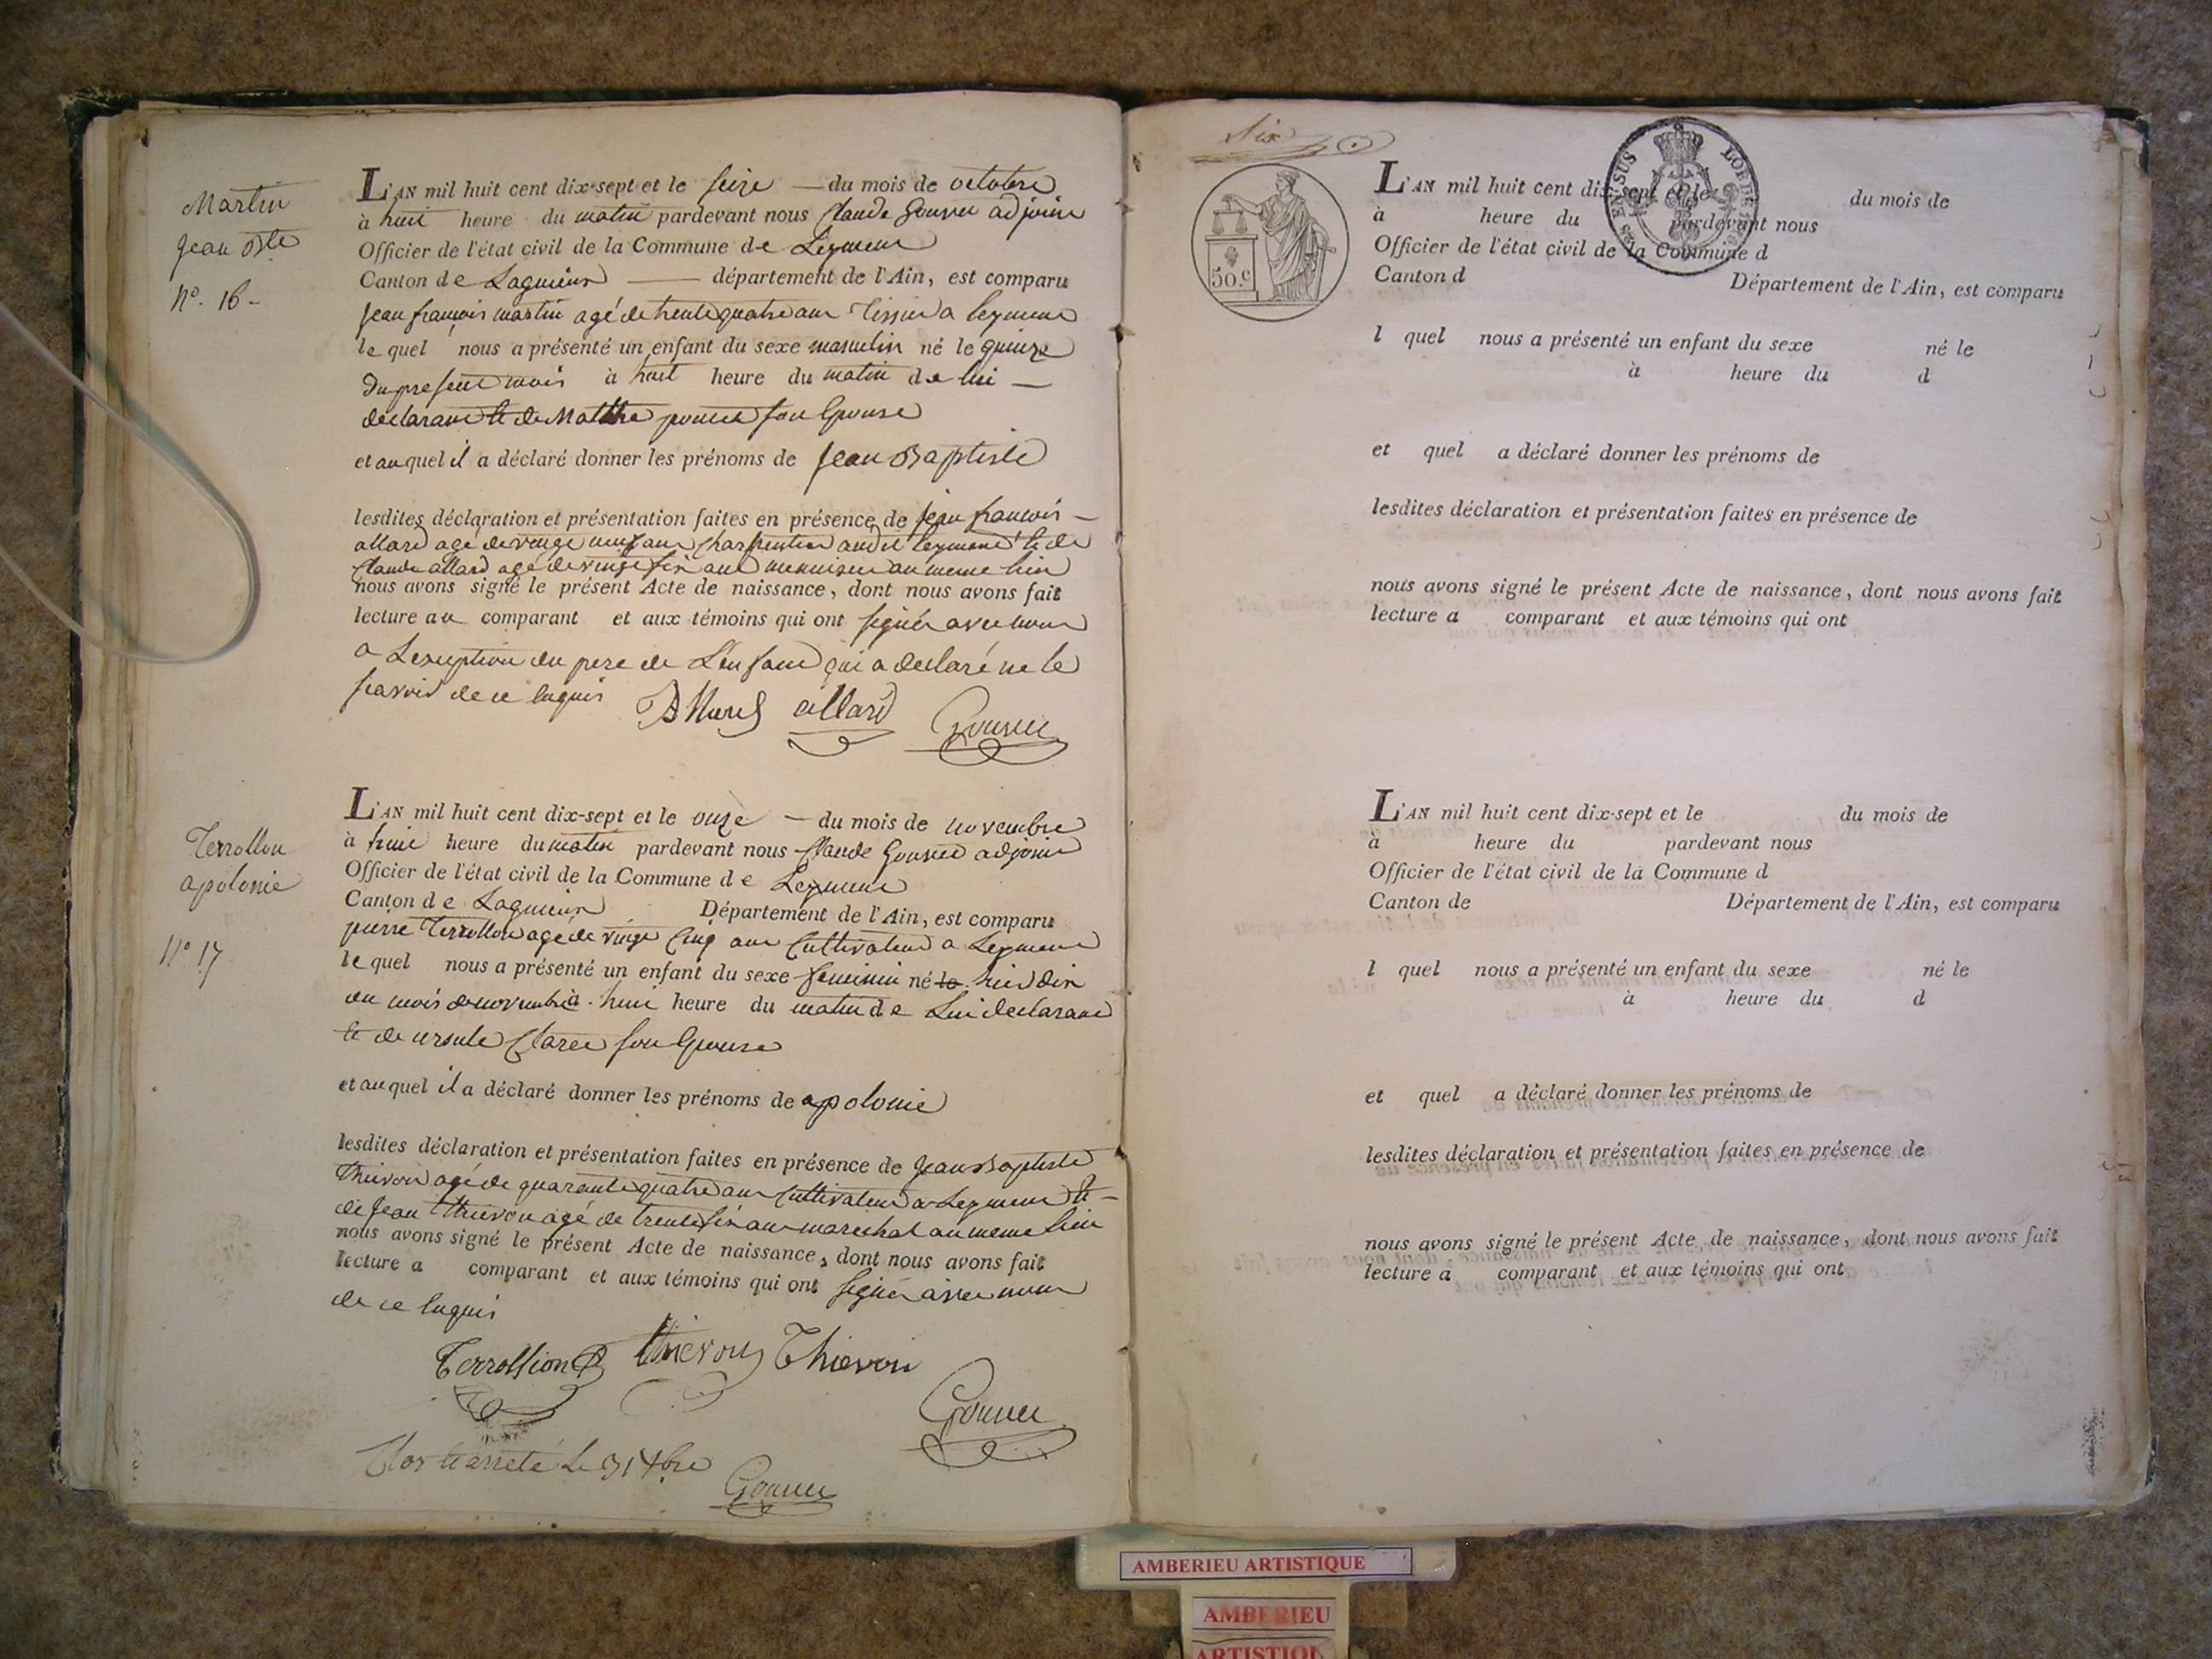 Martin
Jean Bte
No. 16
L'AN mil huit cent dix-sept et le seize — du mois de octobre
à huit heure du matin pardevant nous Claude Gouvee adjoint
Officier de l'état civil de la Commune de Leyment
Canton de Lagnieu — département de l'Ain, est comparu
jean françois martin agé de trente quatre ans Tissier a leyment
le quel nous a présenté un enfant du sexe masculin né le quinze
du present mois à huit heure du matin de lui —
declarant et de Matthe son Epouse
et auquel il a déclaré donner les prénoms de Jean Baptiste
lesdites déclaration et présentation faites en présence de jean francois —
allard agé de vingt neuf ans Charpentier audit leyment et de
Claude allard agé de vingt six ans menuisier au meme lieu
nous avons signé le présent Acte de naissance, dont nous avons fait
lecture au comparant et aux témoins qui ont signés avec nous
a Lexeption du pere de L'enfant qui a declaré ne le
savoir de ce Enquis
allard
Terrollon
apolonie
No 17
L'AN mil huit cent dix-sept et le onze — du mois de novembre
à huit heure du matin pardevant nous Claude Gouvee adjoint
Officier de l'état civil de la Commune de Leyment
Canton de Lagnieu Département de l'Ain, est comparu
pierre Terrollon agé de vingt Cinq ans Cultivateur a Leyment
le quel nous a présenté un enfant du sexe feminin né le hier dix
du mois de novembre à huit heure du matin de Lui declarant
et de ursule son Epouse
et auquel il a déclaré donner les prénoms de apolonie
lesdites déclaration et présentation faites en présence de Jean Baptiste
Thievon agé de quarante quatre ans Cultivateur a Leyment et —
de Jean thievon agé de trente six ans marechal au meme lieu
nous avons signé le présent Acte de naissance, dont nous avons fait
lecture a comparant et aux témoins qui ont signés avec nous
de ce Enquis
Terrollion thievon Thievon
Clos et arreté le 31 Xbre
Six
50.c
L'AN mil huit cent dix-sept et le du mois de
à heure du pardevant nous
Officier de l'état civil de la Commune d
Canton d Département de l'Ain, est comparu
l quel nous a présenté un enfant du sexe né le
à heure du d
et quel a déclaré donner les prénoms de
lesdites déclaration et présentation faites en présence de
nous avons signé le présent Acte de naissance, dont nous avons fait
lecture a comparant et aux témoins qui ont
L'AN mil huit cent dix-sept et le du mois de
à heure du pardevant nous
Officier de l'état civil de la Commune d
Canton de Département de l'Ain, est comparu
l quel nous a présenté un enfant du sexe né le
à heure du d
et quel a déclaré donner les prénoms de
lesdites déclaration et présentation faites en présence de
nous avons signé le présent Acte de naissance, dont nous avons fait
lecture a comparant et aux témoins qui ont
AMBERIEU ARTISTIQUE
AMBERIEU